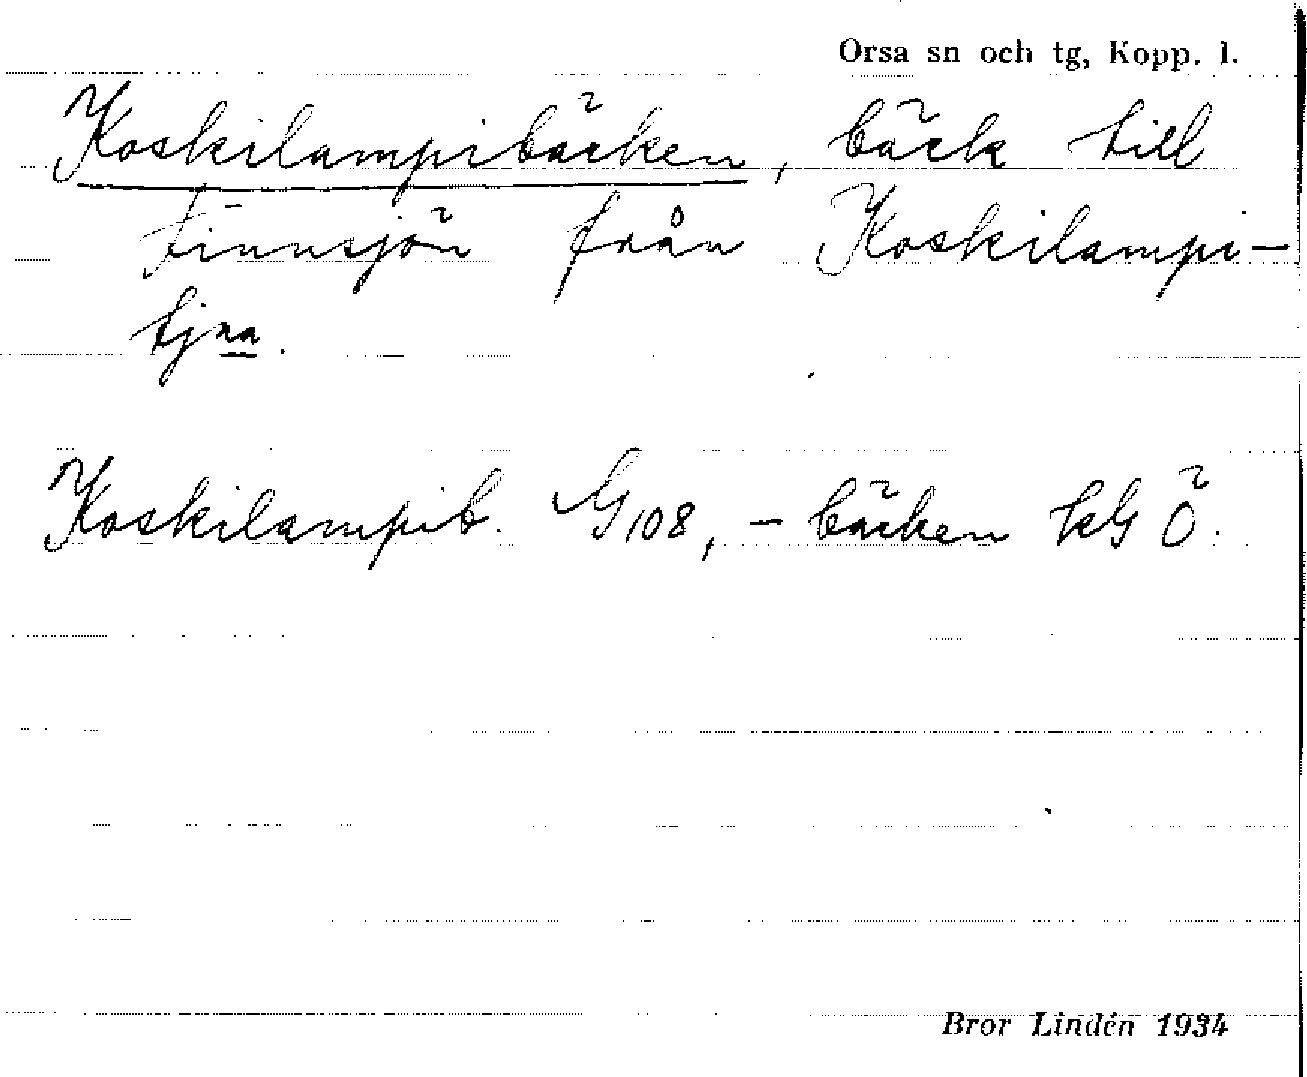 Orsa sn och tg, Kopp. l.
Koskilampibäcken, bäck till
Finnsjön från Koskilampi-
tjna.
Koskilampib. G 108, - bäcken kG Ö.
Bror Lindén 1934